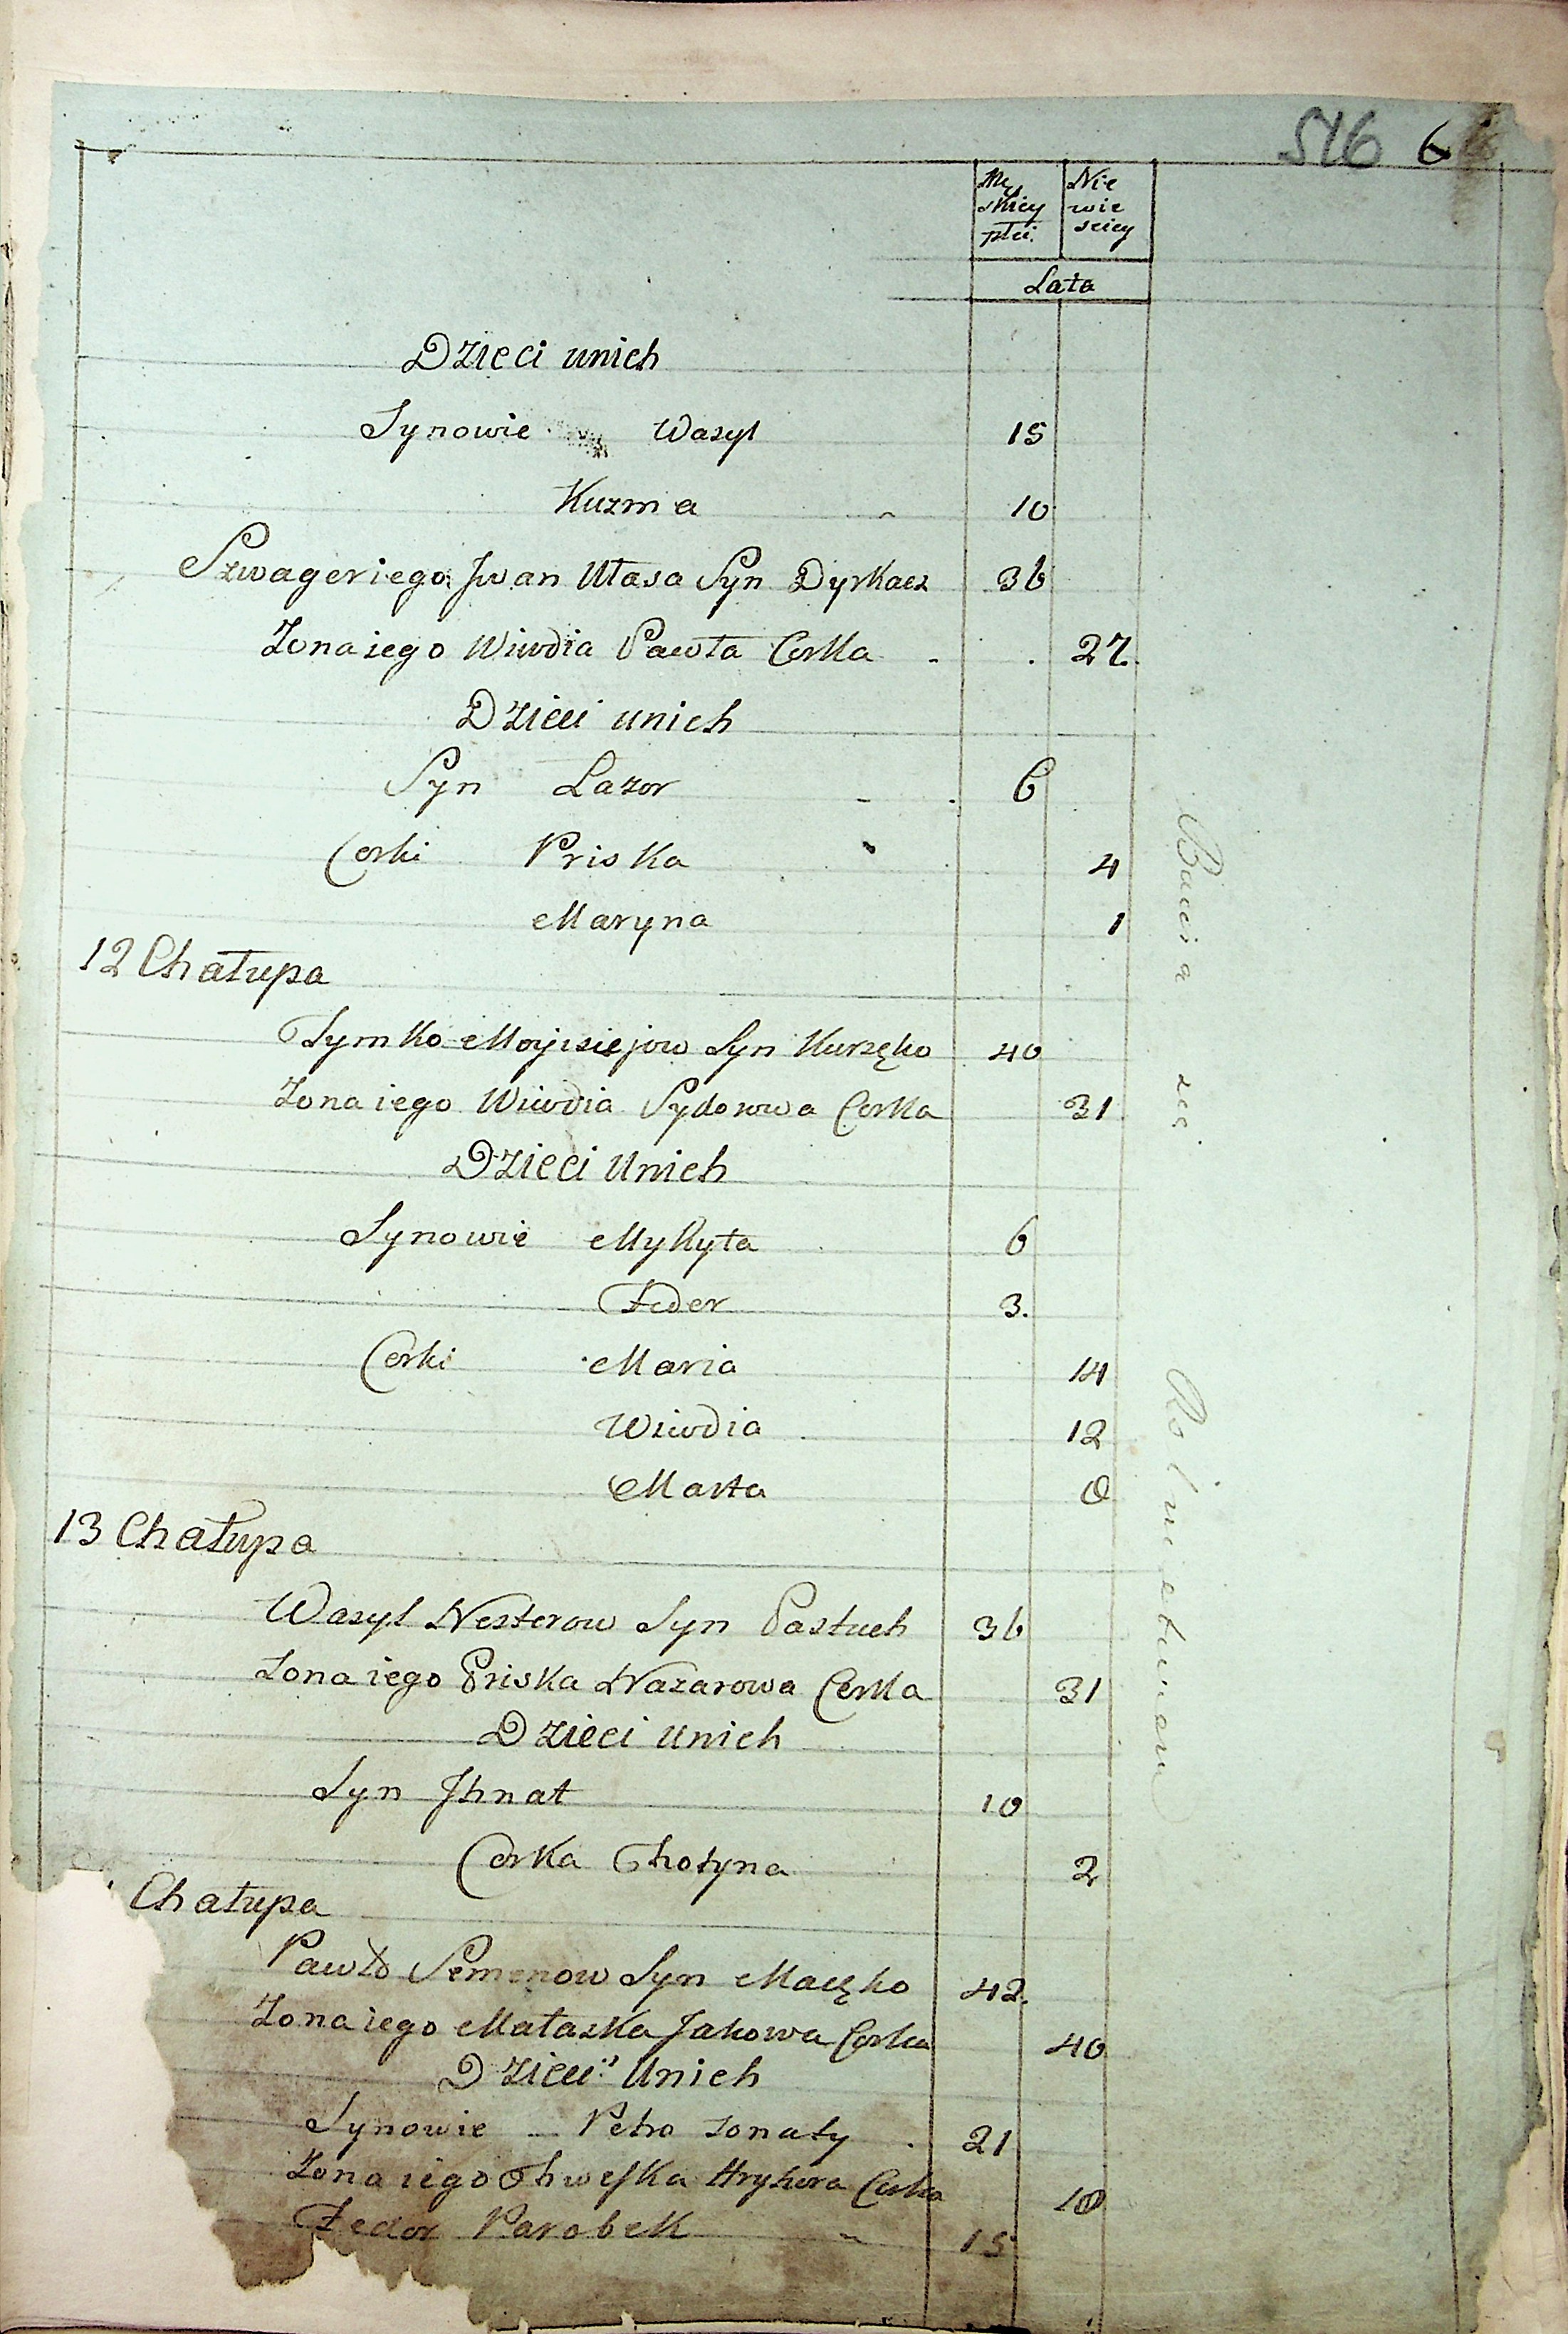 516 6
Mę Nie
skiey wie
płci. sciey
Lata
Dzieci unich
Synowie Wasyl 15
Kuzma 10
Szwageriego Jwan Ułasa Syn Dyrkacz 36
Zona iego Wiwdia Pawła Corka 27.
Dzieci unich
Syn Lazor 6
Corki Priska 4
Maryna 1
12 Chałupa
Tymko Moyisiejow Syn Kurzęko 40
Zona iego Wiwdia Sydorowa Corka 31
Dzieci Unich
Synowie Mykyta 6
Feder 3.
Corki Maria 14
Wiwdia 12
Marta 0
13 Chałupa
Wasyl Nesterow Syn Pastuch 36
Zona iego Priska Nazarowa Corka 31
Dzieci unich
Syn Jhnat 10
Corka Chotyna 2
Chałupa
Pawło Semenow Syn Macęko 42.
Zona iego Małaszka Jakowa Corka 40
Dzieci Unich
Synowie Petro zonaty 21
Zona iego Chweska Hryhora Corka
Fedor Parobek 15